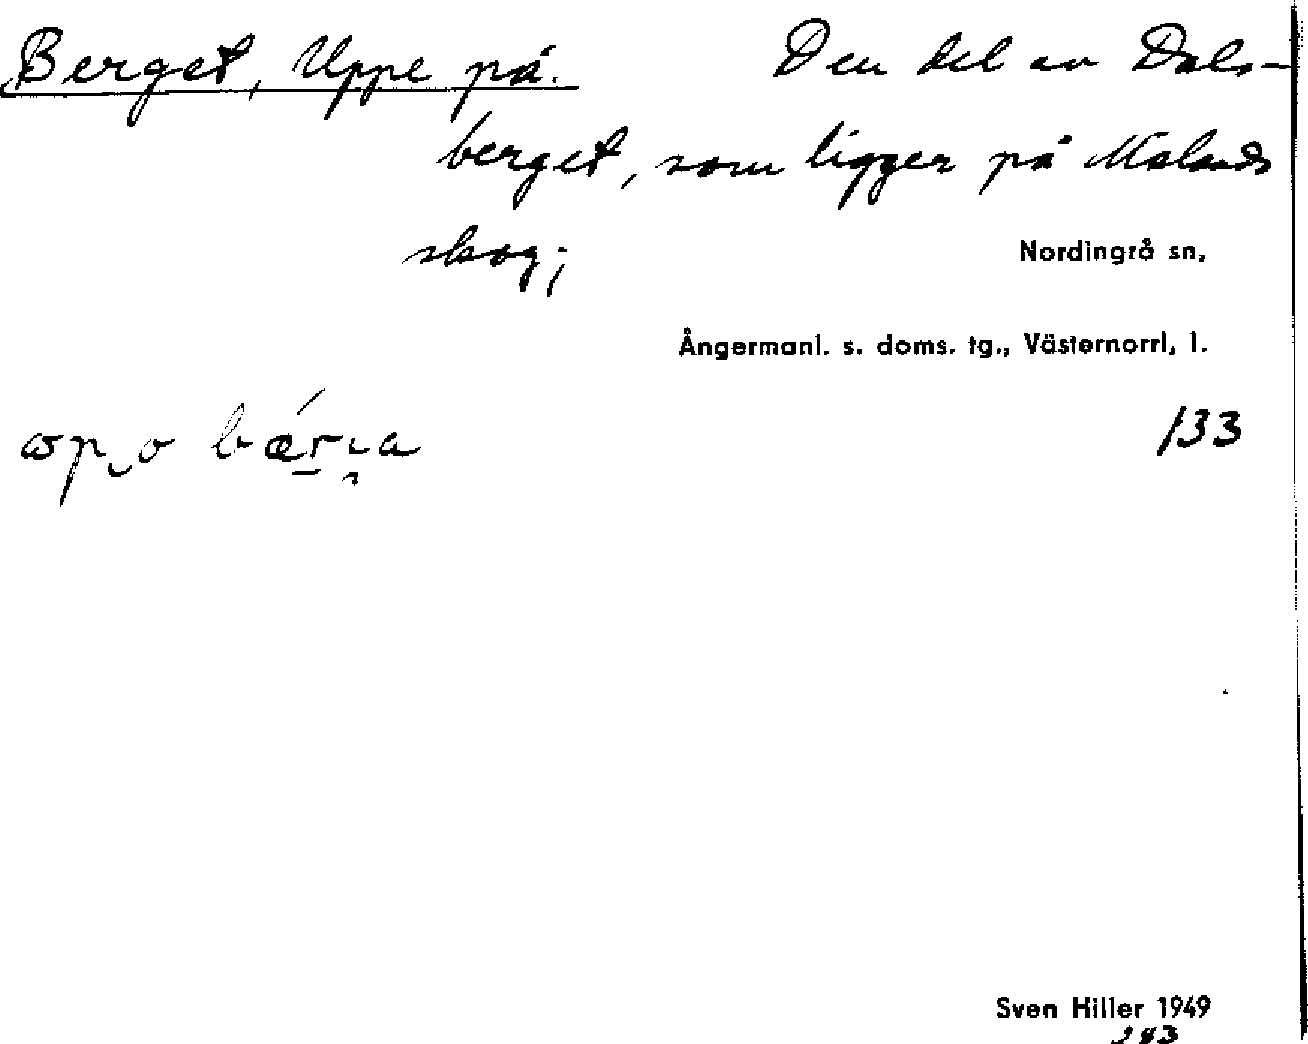 Berget, Uppe på. Den del av Dals-
berget, som ligger på Malands
skog;
Nordingrå sn,
Ångermanl. s. doms. tg., Västernorrl, l.
133
Sven Hiller 1949